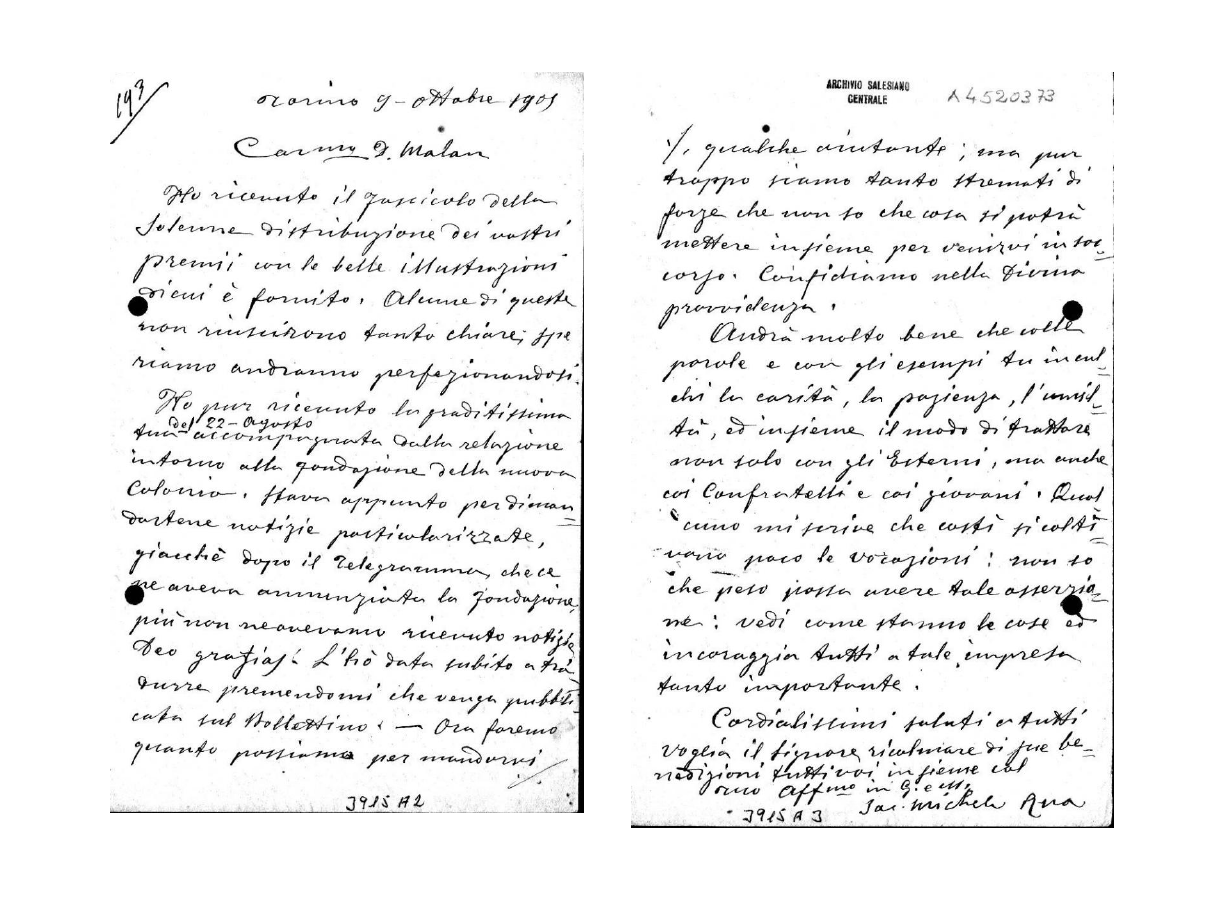 193
Torino 9 - Ottobre 1905
Carmo D. Malan
Ho ricevuto il fascicolo della
Solenne distribuzione dei vostri
premii con le belle illustrazioni
di cui è fornito. Alcune di queste
non riuscirono tanto chiare; spe
riamo andranno perfezionandosi.
Ho pur ricevuto la graditissima
del 22 - Agosto
tua accompagnata dalla relazione
intorno alla fondazione della nuova
Colonia. Stava appunto per diman=
dartene notizie particolarizzate,
giacchè dopo il Telegramma, che ce
ne aveva annunziata la fondazione,
più non ne avevamo ricevuto notizia
Deo gratias! L'hò data subito a tra
durre premendomi che venga pubbli
cata sul Bollettino. — Ora faremo
quanto possiamo per mandarvi
3915 A2
ARCHIVIO SALESIANO
CENTRALE
A4520373
./. qualche aiutante; ma pur
troppo siamo tanto stremati di
forze che non so che cosa si potrà
mettere insieme per venirvi in soc=
corso. Confidiamo nella Divina
provvidenza.
Andrà molto bene che colle
parole e con gli esempi tu incul=
chi la carità, la pazienza, l'umil=
tà, ed insieme il modo di trattare
non solo con gli Esterni, ma anche
coi Confratelli e coi giovani. Qual
cuno mi scrive che costì si colti=
vano poco le vocazioni: non so
che peso possa avere tale asserzio=
ne: vedi come stanno le cose ed
incoraggia tutti a tale impresa
tanto importante.
Cordialissimi saluti a tutti
Voglia il Signore ricolmare di sue be=
nedizioni tutti voi insieme col
tuo Affmo in G. e M.
Sac. Michele Rua
3915 A3